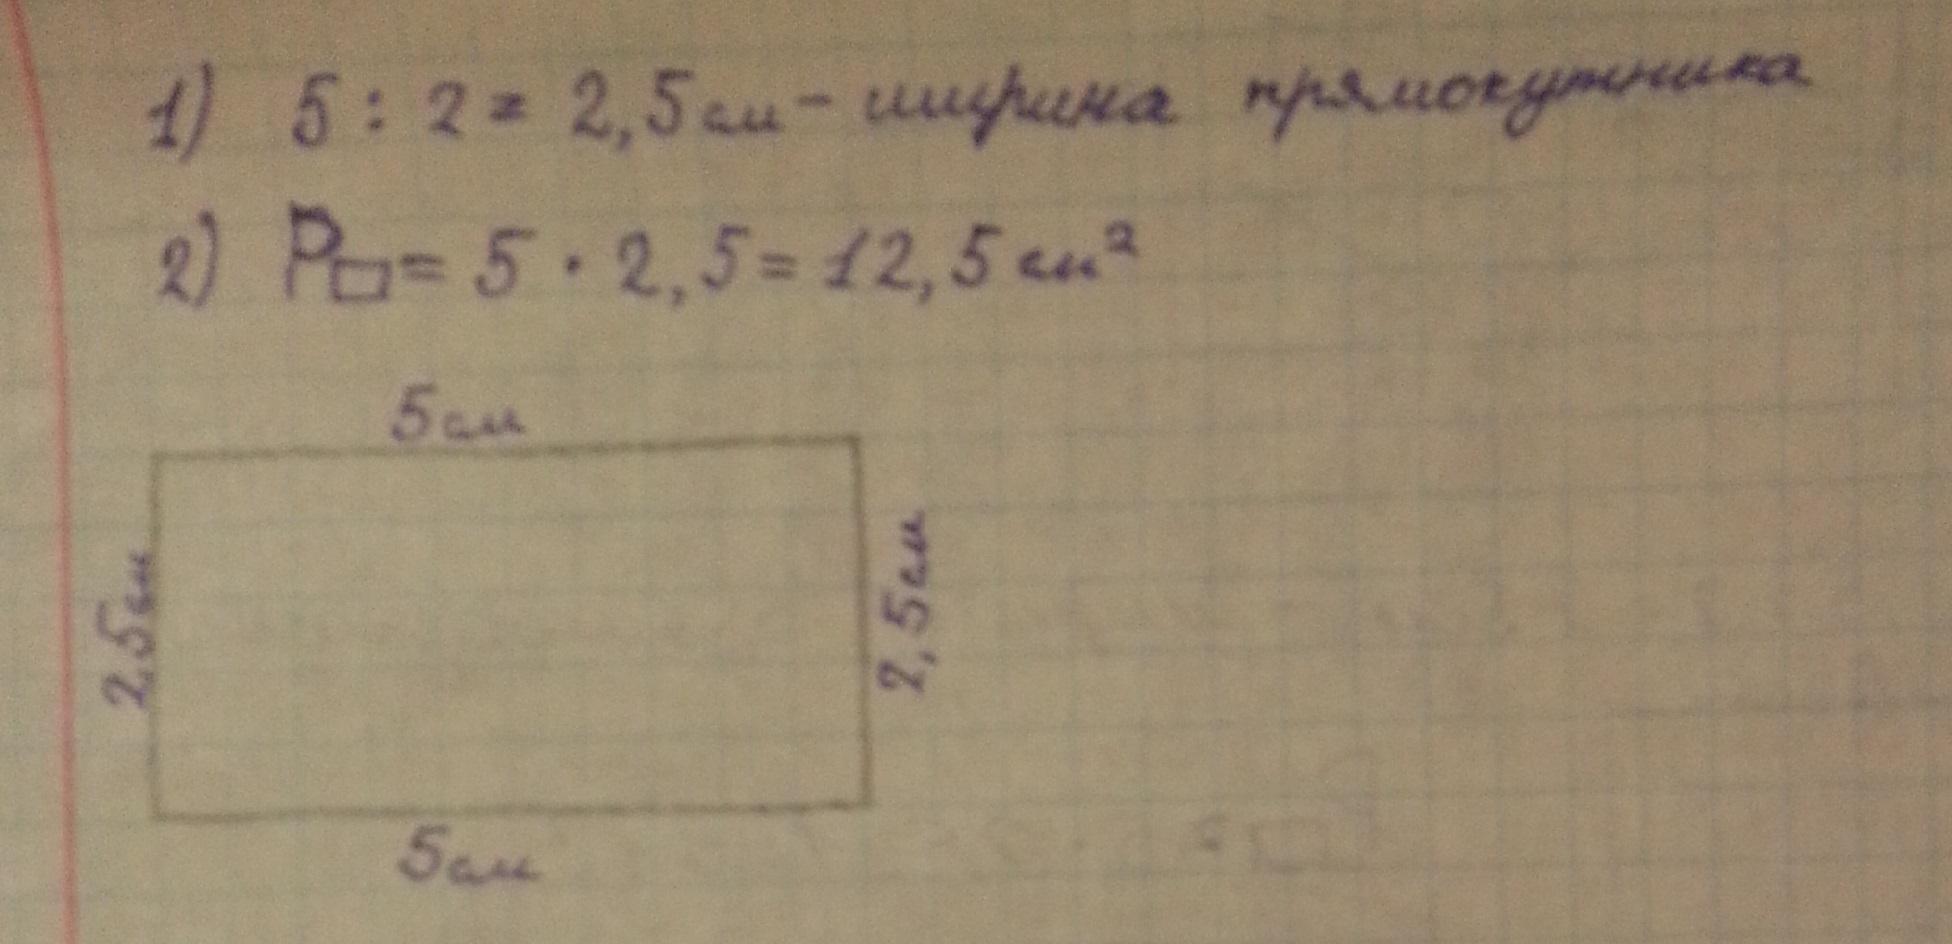 1) 5 : 2 = 2,5см - ширина прямокутника
2) P▭ = 5 · 2,5 = 12,5 см²
5см
2,5см
2,5см
5см